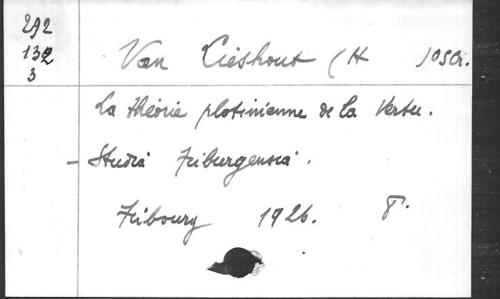 292
132
3
Van Lieshout (H )OSCr.
La théorie plotinienne de la Vertu.
- Studia Friburgensia.
Fribourg 1926. 8°.